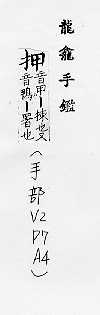 龍龕手鑑
押音甲
音鴨—署也
(手部V2P7A4)